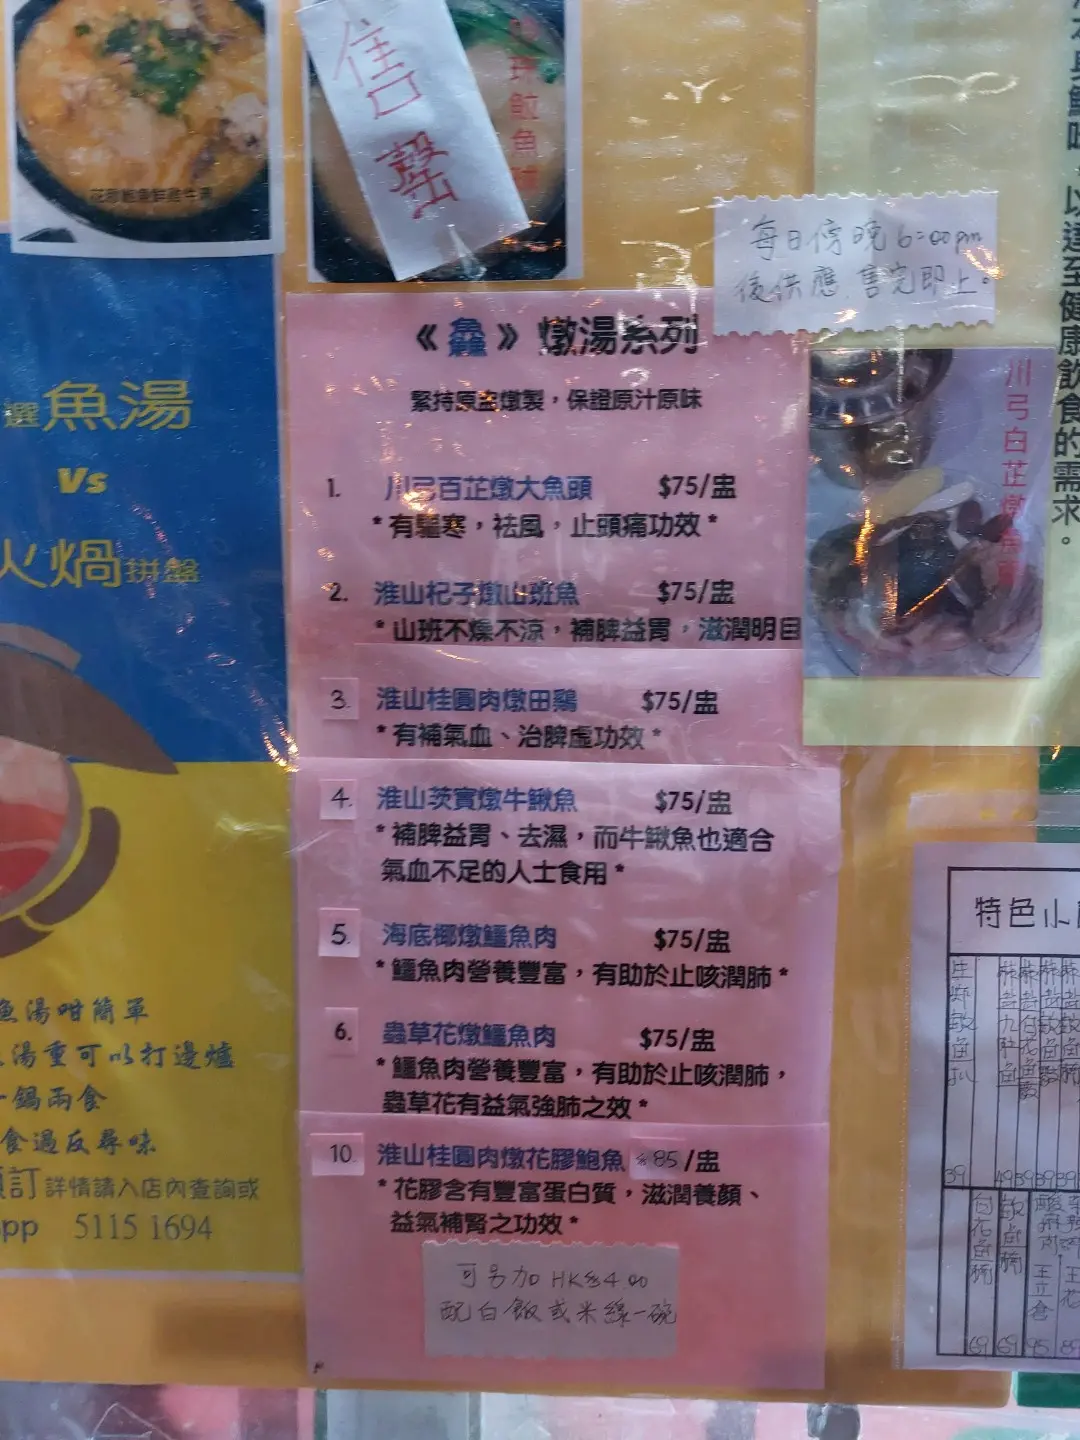 花膠鮑魚鮮雞牛湯
售罄
每日傍晚6:00pm
後供應 售完即止。
川弓白芷燉
以達至健康飲食的需求。
選魚湯
Vs
火煱拼盤
魚湯咁簡單
湯重可以打邊爐
一鍋兩食
食過反尋味
預訂詳情請入店內查詢或
pp 5115 1694
《魚羅》 燉湯系列
緊持原盅燉製，保證原汁原味
1. 川弓百芷燉大魚頭 $75/盅
*有驅寒，祛風，止頭痛功效*
2. 淮山杞子燉山班魚 $75/盅
*山班不燥不涼，補脾益胃，滋潤明目
3. 淮山桂圓肉燉田鷄 $75/盅
*有補氣血、治脾虛功效*
4. 淮山茨實燉牛鰍魚 $75/盅
*補脾益胃、去濕，而牛鰍魚也適合
氣血不足的人士食用*
5. 海底椰燉鱷魚肉 $75/盅
*鱷魚肉營養豐富，有助於止咳潤肺*
6. 蟲草花燉鱷魚肉 $75/盅
*鱷魚肉營養豐富，有助於止咳潤肺，
蟲草花有益氣強肺之效*
10. 淮山桂圓肉燉花膠鮑魚 $85/盅
*花膠含有豐富蛋白質，滋潤養顏、
益氣補腎之功效*
可另加 HK$4.00
配白飯或米線一碗
特色小